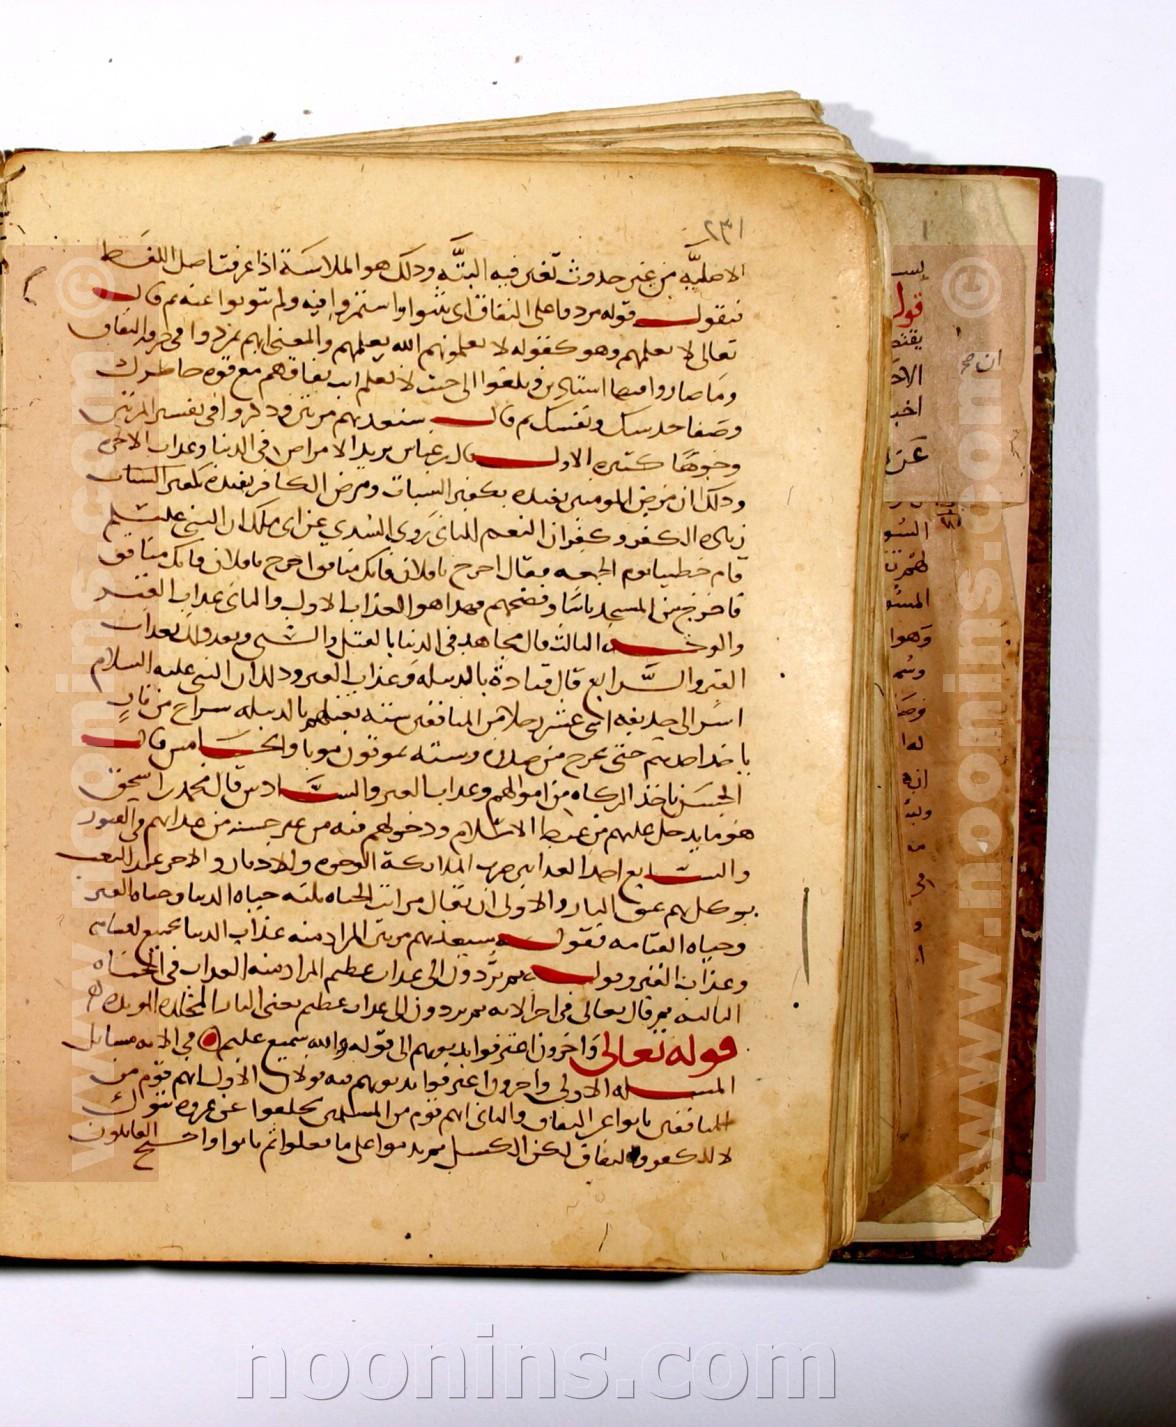 ٢٣١
الاصلية من غير حدوث تغير فيه البتة وذلك هو الملاسة اذا عرفت اصل اللفظ
فنقول قوله مردوا على النفاق اى ثبتوا واستمروا فيه ولم يتوبوا عنه ثم قال
تعالى لا تعلمهم وهو كقوله لا تعلمونهم الله يعلمهم والمعنى انهم تمردوا فى حرفة النفاق
وصاروا فيها استادين وبلغوا الى حيث لا تعلم انت نفاقهم مع قوة خاطرك
وصفا حدسك ونفسك ثم قال سنعذبهم مرتين وذكروا فى تفسير المرتين
وجوها كثيرة الاول قال ابن عباس يريد الامراض فى الدنيا وعذاب الاخرة
وذلك ان مرض المومن يفيده تكفير السيات ومرض الكافر يفيده
زيادة الكفر وكفران النعم الثانى روى السدي عن انس بن ملك ان النبى
قام خطيبا يوم الجمعة فقال اخرج يا فلان فانك منافق اخرج يا فلان فانك منافق
فاخرج من المسجد ناسا وفضحهم فهذا هو العذاب الاول والثانى عذاب القبر
والوجه الثالث قال مجاهد فى الدنيا بالقتل والسبى وبعد ذلك بعذاب
القبر والرابع قال قتادة بالدبيلة وعذاب القبر وذلك ان النبى عليه السلام
اسر الى حذيفة اثنى عشر رجلا من المنافقين ستة يبتليهم بالدبيلة سراج من نار
ياخذ احدهم حتى يخرج من صدره وستة يموتون موتا والخامس قال
الحسن ياخذ الزكاة من اموالهم وعذاب القبر والسادس قال محمد بن اسحق
هو ما يدخل عليهم من غيظ الاسلام ودخولهم فيه من غير حسبة ثم عذابهم فى القبور
والسابع احد العذابين ضرب الملائكة الوجوه والادبار والاخر عند البعث
يوكل بهم عنق النار والاولى ان يقال مراتب الحياة ثلثة حياة الدنيا وحياة القبر
وحياة القيامة فقوله سنعذبهم مرتين المراد منه عذاب الدنيا بجميع اقسامه
وعذاب القبر وقوله ثم يردون الى عذاب عظيم المراد منه العذاب فى الحياة
الثالثة ثم قال تعالى فى اخر الاية ثم يردون الى عذاب عظيم يعنى النار المخلدة الموبدة
قوله تعالى واخرون اعترفوا بذنوبهم الى قوله والله سميع عليم فى الاية مسايل
المسلة الاولى واخرون اعترفوا بذنوبهم فيه قولان الاول انهم قوم من
المنافقين تابوا عن النفاق والثانى انهم قوم من المسلمين تخلفوا عن غزوة تبوك
لا للكفر والنفاق لكن للكسل ثم ندموا على ما فعلوا ثم تابوا واحتج القايلون
١
قول
الاد
ان صح
www.noonins.com ©
www.noonins.com ©
noonins.com